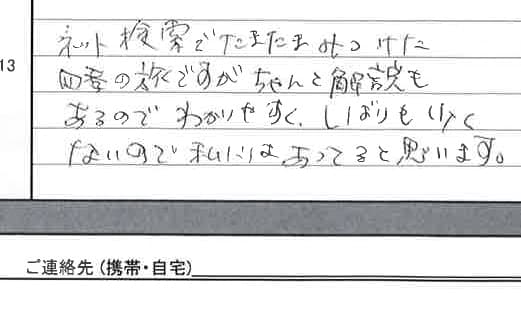 ネット検索でたまたまみつけた
13
四季の旅ですがちゃんと解説も
あるのでわかりやすく、しばりもげんく
ないので私にはあってると思います。
ご連絡先（携帯・自宅）